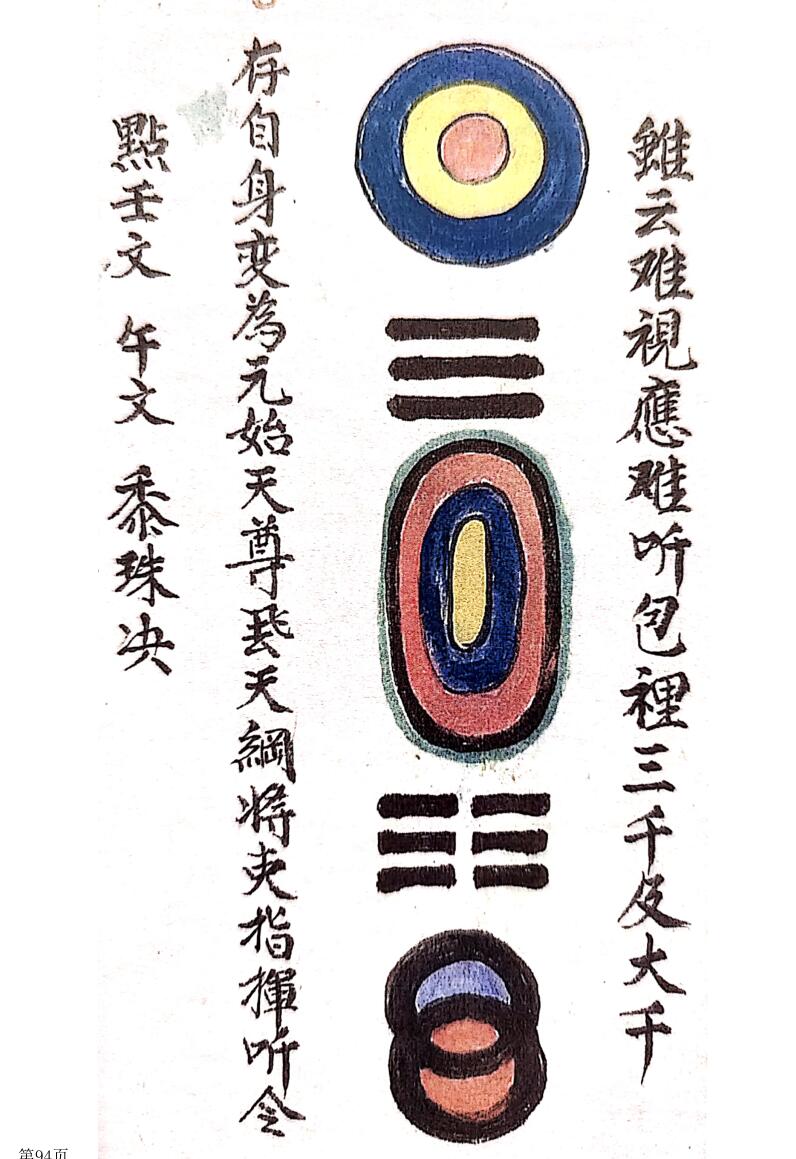 雖云难視應难听包裡三千及大千
存自身变為元始天尊飛天綱將吏指揮听令
點壬文 午文 黍珠决
第94页